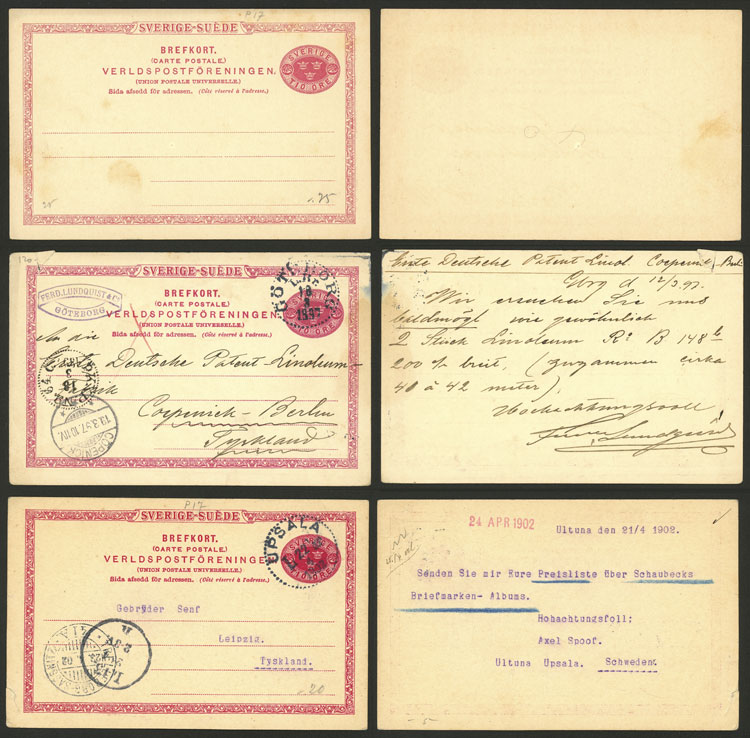 P17
SVERIGE-SUÈDE
BREFKORT.
(CARTE POSTALE.)
VERLDSPOSTFÖRENINGEN.
(UNION POSTALE UNIVERSELLE.)
Sida afsedd för adressen. (Côté réservé à l'adresse.)
SVERIGE
TIO ÖRE
25
120
SVERIGE-SUÈDE
FERD. LUNDQUIST & Co
GÖTEBORG
BREFKORT.
(CARTE POSTALE.)
VERLDSPOSTFÖRENINGEN.
(UNION POSTALE UNIVERSELLE.)
Sida afsedd för adressen. (Côté réservé à l'adresse.)
GÖTEBORG
1897
An die
Deutsche Patent Linoleum-
Coepenick-Berlin
Tyskland
CÖPENICK
13.3.97
Erste Deutsche Patent Linol. Coepenick Berl.
Gbrg d 12/3.97.
Wir ersuchen Sie uns
baldmögl wie gewöhnlich
2 Stück Linoleum B 148
200 % breit (zuzammen cirka
40 à 42 meter)
Hochachtungsvoll
Lundquist
P17
SVERIGE-SUÈDE
BREFKORT.
(CARTE POSTALE.)
VERLDSPOSTFÖRENINGEN.
(UNION POSTALE UNIVERSELLE.)
Sida afsedd för adressen. (Côté réservé à l'adresse.)
UPSALA
Gebryder Senf
Leipzig.
Tyskland.
20
24 APR 1902
Ultuna den 21/4 1902.
Senden Sie mir Eure Preisliste über Schaubecks
Briefmarken- Albums.
Hohachtungsfoll;
Axel Spoof.
Ultuna Upsala. Schweden.